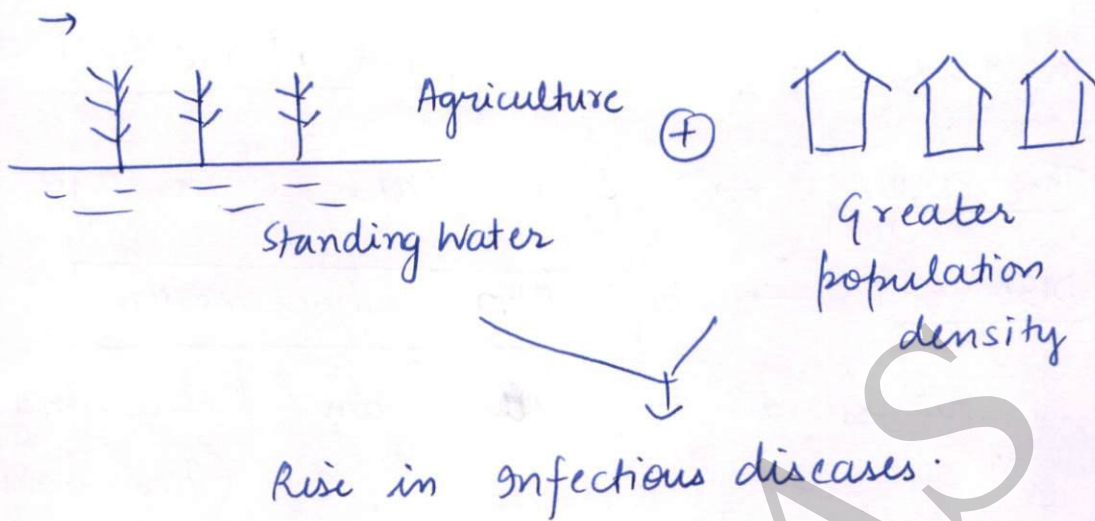 →
Agriculture
+
Standing Water
Greater
population
density
Rise in Infectious diseases.
AS